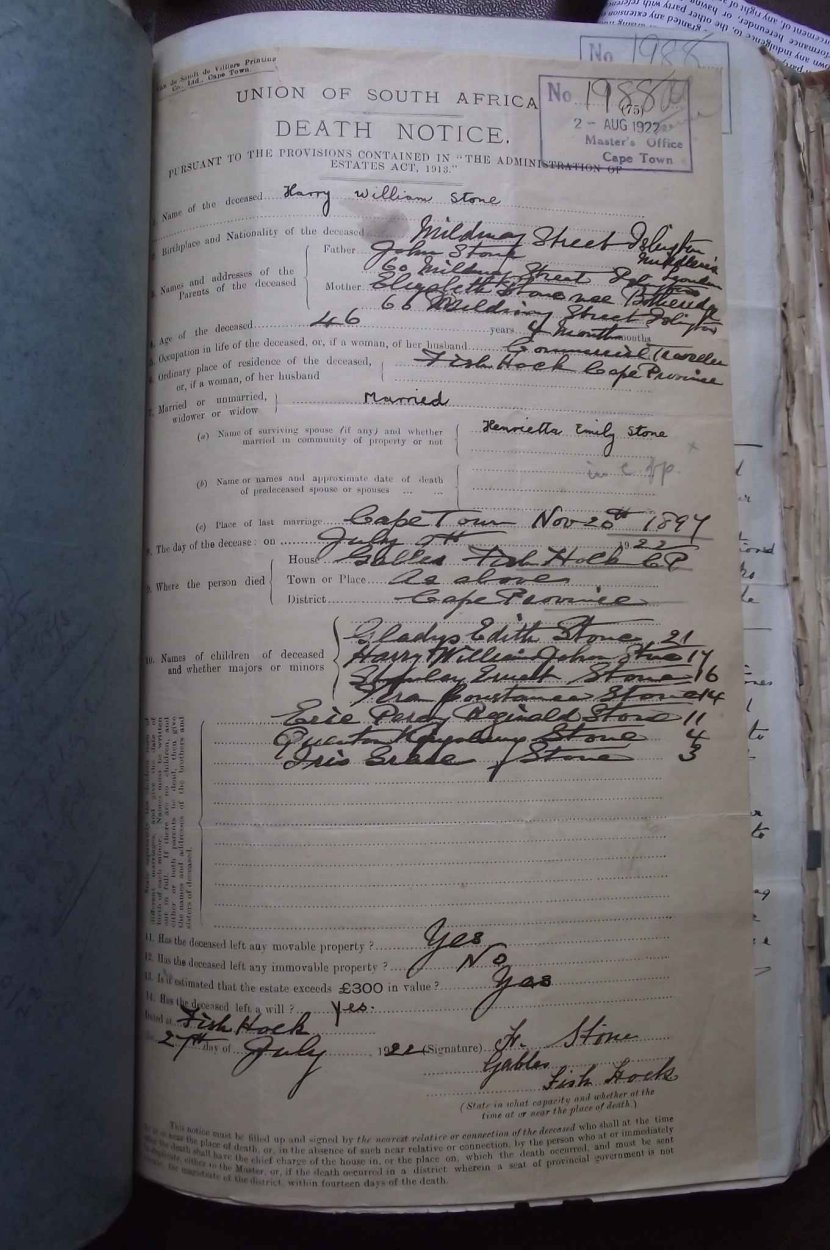 Van de Sandt de Villiers Printing
Co., Ltd., Cape Town.
No 1988
UNION OF SOUTH AFRICA
No. 1988
(75)
2 - AUG 1922
Master's Office
Cape Town
DEATH NOTICE.
PURSUANT TO THE PROVISIONS CONTAINED IN "THE ADMINISTRATION OF
ESTATES ACT, 1913."
1. Name of the deceased Harry William Stone
2. Birthplace and Nationality of the deceased Mildmay Street Islington Middlesex
3. Names and addresses of the Parents of the deceased
Father John Stone
60 Mildmay Street London
Mother Elizabeth Stone nee
66 Mildmay Street Islington
4. Age of the deceased 46 years 4 Month months
5. Occupation in life of the deceased, or, if a woman, of her husband Commercial Traveller
6. Ordinary place of residence of the deceased, or, if a woman, of her husband Fish Hoek Cape Province
7. Married or unmarried, widower or widow Married
(a) Name of surviving spouse (if any) and whether married in community of property or not Henrietta Emily Stone
in c of p.
(b) Name or names and approximate date of death of predeceased spouse or spouses ... ...
(c) Place of last marriage Cape Town Nov 20th 1897
8. The day of the decease: on July 1922
9. Where the person died
House Gables Fish Hoek CP
Town or Place As above
District Cape Province
10. Names of children of deceased and whether majors or minors
Gladys Edith Stone 21
Harry William John Stone 17
Stanley Ernest Stone 16
Constance Stone 14
Eric Percy Reginald Stone 11
Quenton Stone 4
Iris Grace Stone 3
the names and addresses of the brothers and
sisters of deceased.
11. Has the deceased left any movable property? Yes
12. Has the deceased left any immovable property? No
13. Is it estimated that the estate exceeds £300 in value? Yes
14. Has the deceased left a will? Yes.
Dated at Fish Hoek
27th day of July 1922 (Signature) H. Stone
Gables
Fish Hoek
(State in what capacity and whether at the
time at or near the place of death)
This notice must be filled up and signed by the nearest relative or connection of the deceased who shall at the time
near the place of death, or, in the absence of such near relative or connection, by the person who at or immediately
after the death shall have the chief charge of the house in, or the place on, which the death occurred, and must be sent
in duplicate, either to the Master, or, if the death occurred in a district wherein a seat of provincial government is not
the magistrate of the district, within fourteen days of the death.